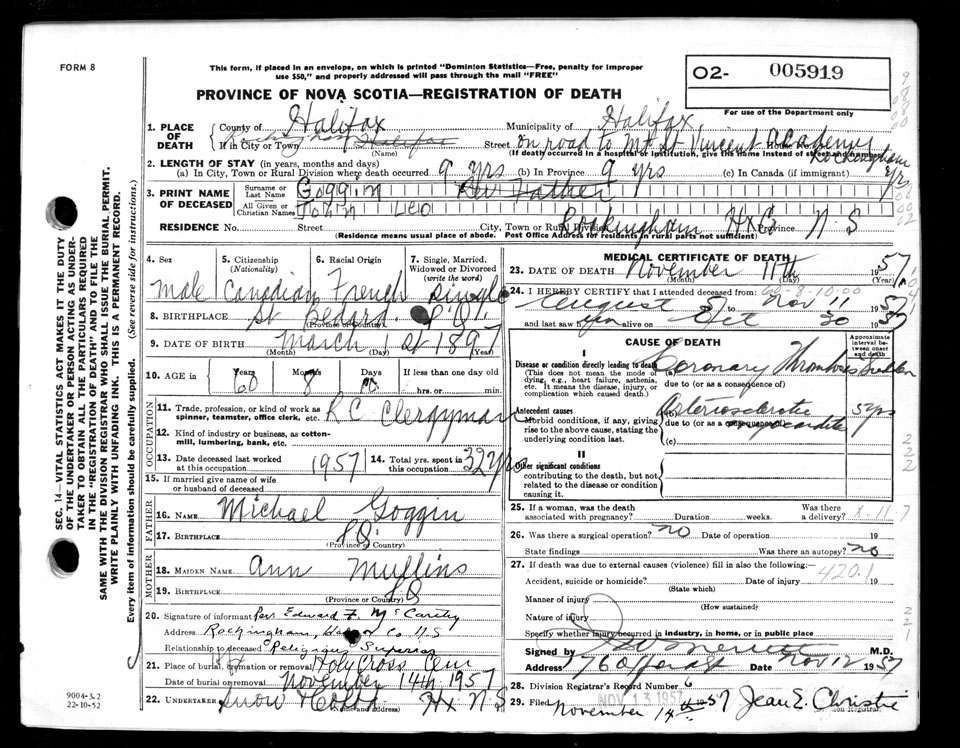 FORM 8
This form, if placed in an envelope, on which is printed "Dominion Statistics—Free, penalty for improper
use $50," and properly addressed will pass through the mail "FREE"
O2- 005919
PROVINCE OF NOVA SCOTIA—REGISTRATION OF DEATH
For use of the Department only
1. PLACE OF DEATH
County of Halifax Municipality of Halifax
If in City or Town Rockingham Halifax Street on road to Mt St Vincent Academy
(Name) (If death occurred in a hospital or institution, give the name instead of street and number)
Rockingham
2. LENGTH OF STAY (in years, months and days)
(a) In City, Town or Rural Division where death occurred 9 yrs (b) In Province 9 yrs (c) In Canada (if immigrant) yrs
3. PRINT NAME OF DECEASED
Surname or Last Name Goggin Rev Father
All Given or Christian Names John Leo
RESIDENCE No. Street City, Town or Rural Division Rockingham Hx Co Province N S
(Residence means usual place of abode. Post Office Address for residents in rural parts not sufficient)
4. Sex 5. Citizenship (Nationality) 6. Racial Origin 7. Single, Married, Widowed or Divorced (write the word)
male Canadian French Single
8. BIRTHPLACE St P.Q.
(Province or Country)
9. DATE OF BIRTH March 1st 1897
(Month) (Day) (Year)
10. AGE in Years Months Days If less than one day old
60 8 10 hrs. or min.
OCCUPATION
11. Trade, profession, or kind of work as spinner, teamster, office clerk, etc. R C Clergyman
12. Kind of industry or business, as cotton-mill, lumbering, bank, etc.
13. Date deceased last worked at this occupation 1957 14. Total yrs. spent in this occupation 32 yrs
15. If married give name of wife or husband of deceased
FATHER
16. NAME Michael Goggin
17. BIRTHPLACE P.Q.
(Province or Country)
MOTHER
18. MAIDEN NAME Ann Mullins
19. BIRTHPLACE P.Q.
(Province or Country)
20. Signature of informant Rev. Edward F. McCarthy
Address Rockingham, Co N.S
Relationship to deceased Religious Superior
21. Place of burial, cremation or removal Holy Cross Cem
Date of burial or removal November 14th 1957
22. UNDERTAKER Snow Hx N S
(Name and address)
MEDICAL CERTIFICATE OF DEATH
23. DATE OF DEATH November 11th 1957
(Month) (Day) (Year)
24. I HEREBY CERTIFY that I attended deceased from:
August 57 to Nov 11 1957
and last saw him alive on Oct 30 1957
CAUSE OF DEATH
Approximate interval between onset and death
I
Disease or condition directly leading to death Coronary Thrombosis Sudden
(This does not mean the mode of dying, e.g., heart failure, asthenia, etc. It means the disease, injury, or complication which caused death.)
due to (or as a consequence of)
Antecedent causes
Morbid conditions, if any, giving rise to the above cause, stating the underlying condition last.
Arteriosclerotic 5 yrs
due to (or as a consequence of) myocarditis
(c)
II
Other significant conditions
contributing to the death, but not related to the disease or condition causing it.
25. If a woman, was the death associated with pregnancy? Duration weeks. Was there a delivery?
X-11-7
26. Was there a surgical operation? no Date of operation 19
State findings Was there an autopsy? no
27. If death was due to external causes (violence) fill in also the following:—
420.1
Accident, suicide or homicide? Date of injury 19
(State which)
Manner of injury
(How sustained)
Nature of injury
Specify whether injury occurred in industry, in home, or in public place
Signed by M.D.
Address Date Nov 12 1957
28. Division Registrar's Record Number 6
NOV 13 1957
29. Filed November 14th 1957 Jean E. Christie
Division Registrar.
SEC. 14—VITAL STATISTICS ACT MAKES IT THE DUTY
OF THE UNDERTAKER OR PERSON ACTING AS UNDER-
TAKER TO OBTAIN ALL THE PARTICULARS REQUIRED
IN THE "REGISTRATION OF DEATH" AND TO FILE THE
SAME WITH THE DIVISION REGISTRAR WHO SHALL ISSUE THE BURIAL PERMIT.
WRITE PLAINLY WITH UNFADING INK. THIS IS A PERMANENT RECORD.
Every item of information should be carefully supplied. (See reverse side for instructions.)
9004-3.2
22-10-52